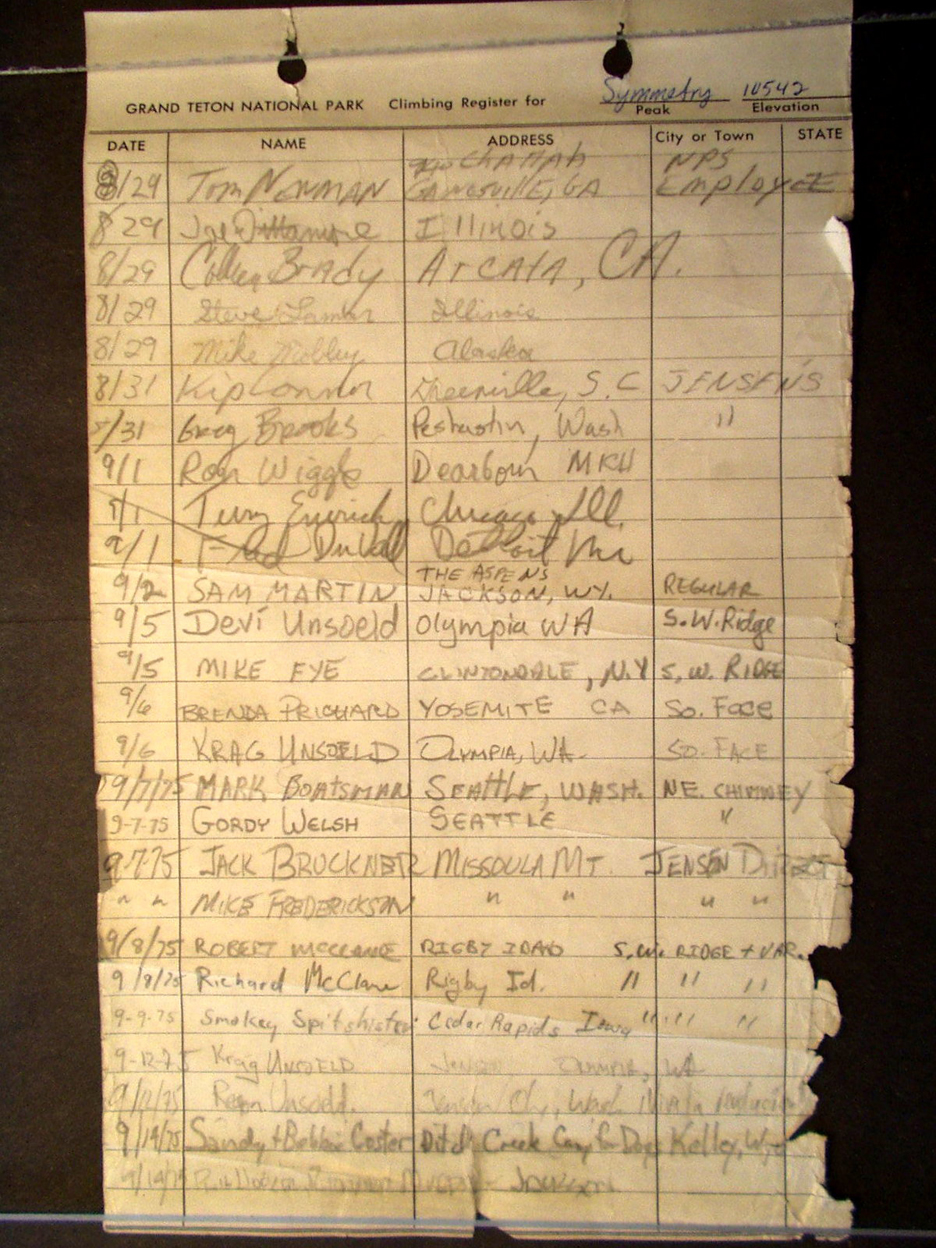 Symmetry 10542
GRAND TETON NATIONAL PARK Climbing Register for Peak Elevation
DATE NAME ADDRESS City or Town STATE
NPS
8/29 Tom NEWMAN GAINESVILLE, GA EmployEE
8 29 Joe Illinois
8/29 Colleen Brady ArCATA, CA.
8/29 Steve Lamar Illinois
8/29 Mike Mobley Alaska
8/31 Kip Connor Greenville, S. C JENSEN'S
8/31 Greg Brooks Peshastin, Wash "
9/1 Ron Wiggle Dearborn MICH
9/1 Terry Chicago Ill.
9/1 DuVall Detroit Mi
THE ASPENS
9/2 SAM MARTIN JACKSON, WY. REGULAR
9/5 Devi Unsoeld Olympia WA S.W.Ridge
9/5 MIKE FYE CLINTONDALE, N.Y S. W. RIDGE
9/6 BRENDA PRICHARD YOSEMITE CA So. Face
9/6 KRAG UNSOELD OLYMPIA, WA. SO. FACE
9/7/75 MARK BOATSMAN SEATTLE, WASH. NE. CHIMNEY
9-7-75 GORDY WELSH SEATTLE "
9-7-75 JACK BRUCKNER MISSOULA MT. JENSEN DIRECT
" " MIKE FREDERICKSON " " " "
9/8/75 ROBERT MCCLANE RIGBY IDAHO S.W. RIDGE + VAR.
9/8/75 Richard McClane Rigby Id. " " "
9-9-75 Smokey Cedar Rapids Iowa " " " "
9-12-75 Krag UNSOELD OLYMPIA, WA
9/12/75 Regon Unsoeld. Wash
9/19/75 Sandy + Bobbie Ditch Creek Kelley, Wyo
9/19/75